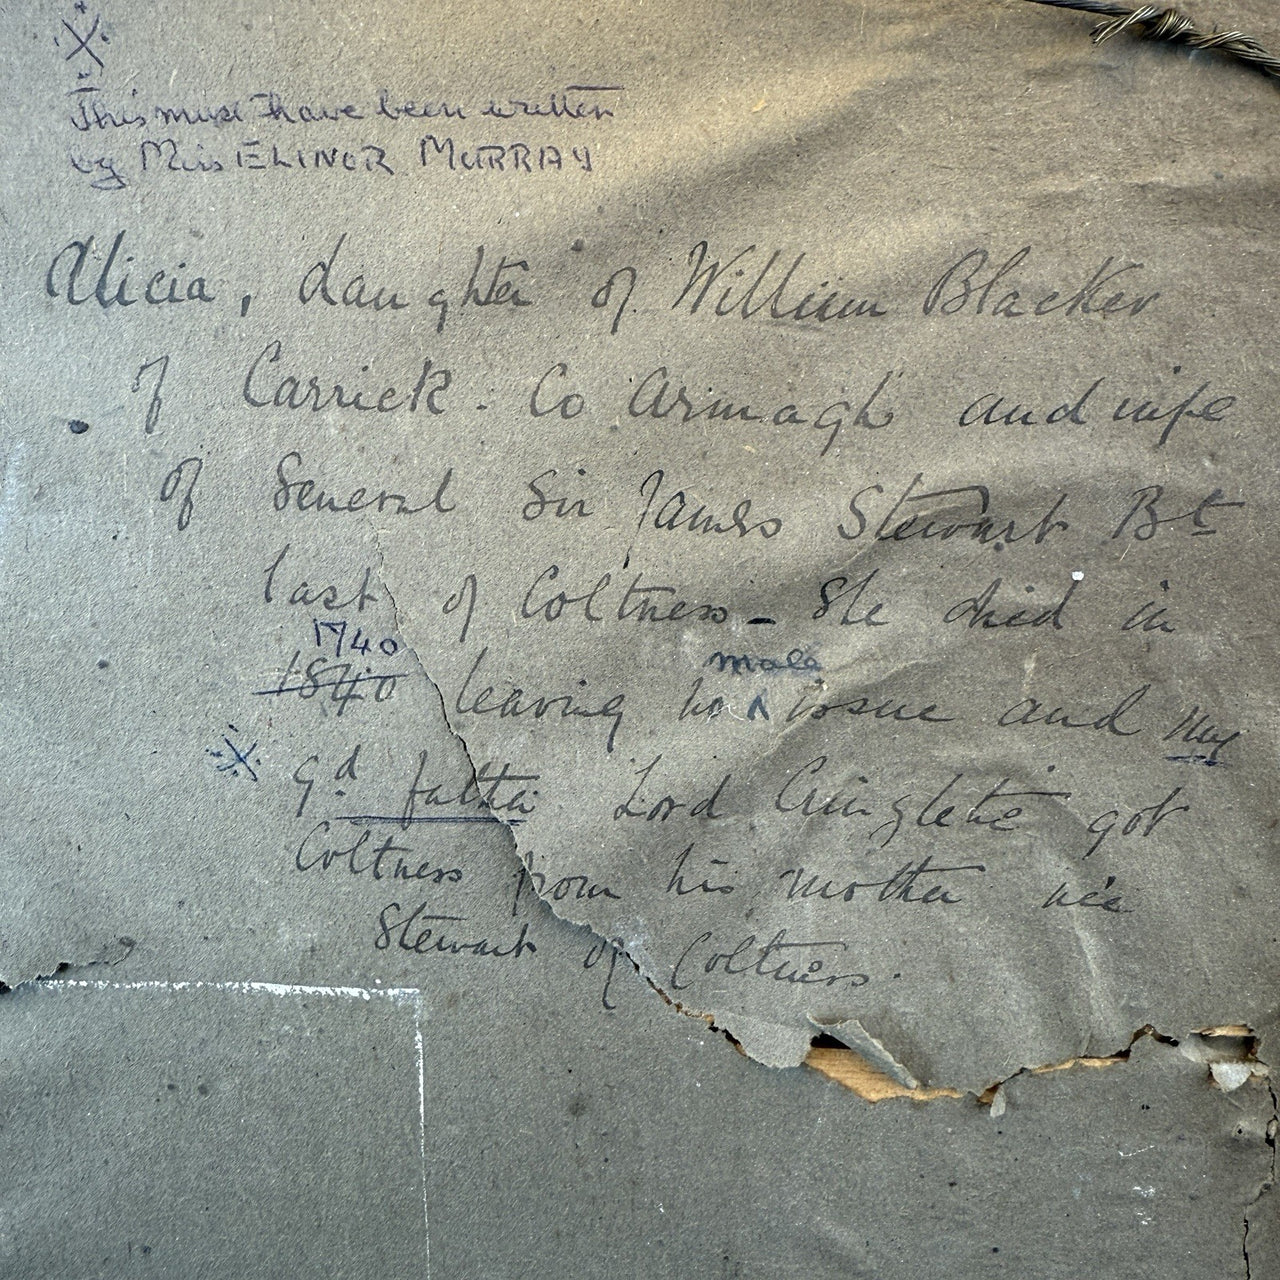 ※
This must have been written
by Miss ELINOR MURRAY
Alicia, daughter of William Blacker
of Carrick. Co Armagh and wife
of General Sir James Stewart Bt
last of Coltness - She died in
1740
1840 leaving no male issue and my
※ gd. father Lord Cringletie got
Coltness from his mother née
Stewart of Coltness.